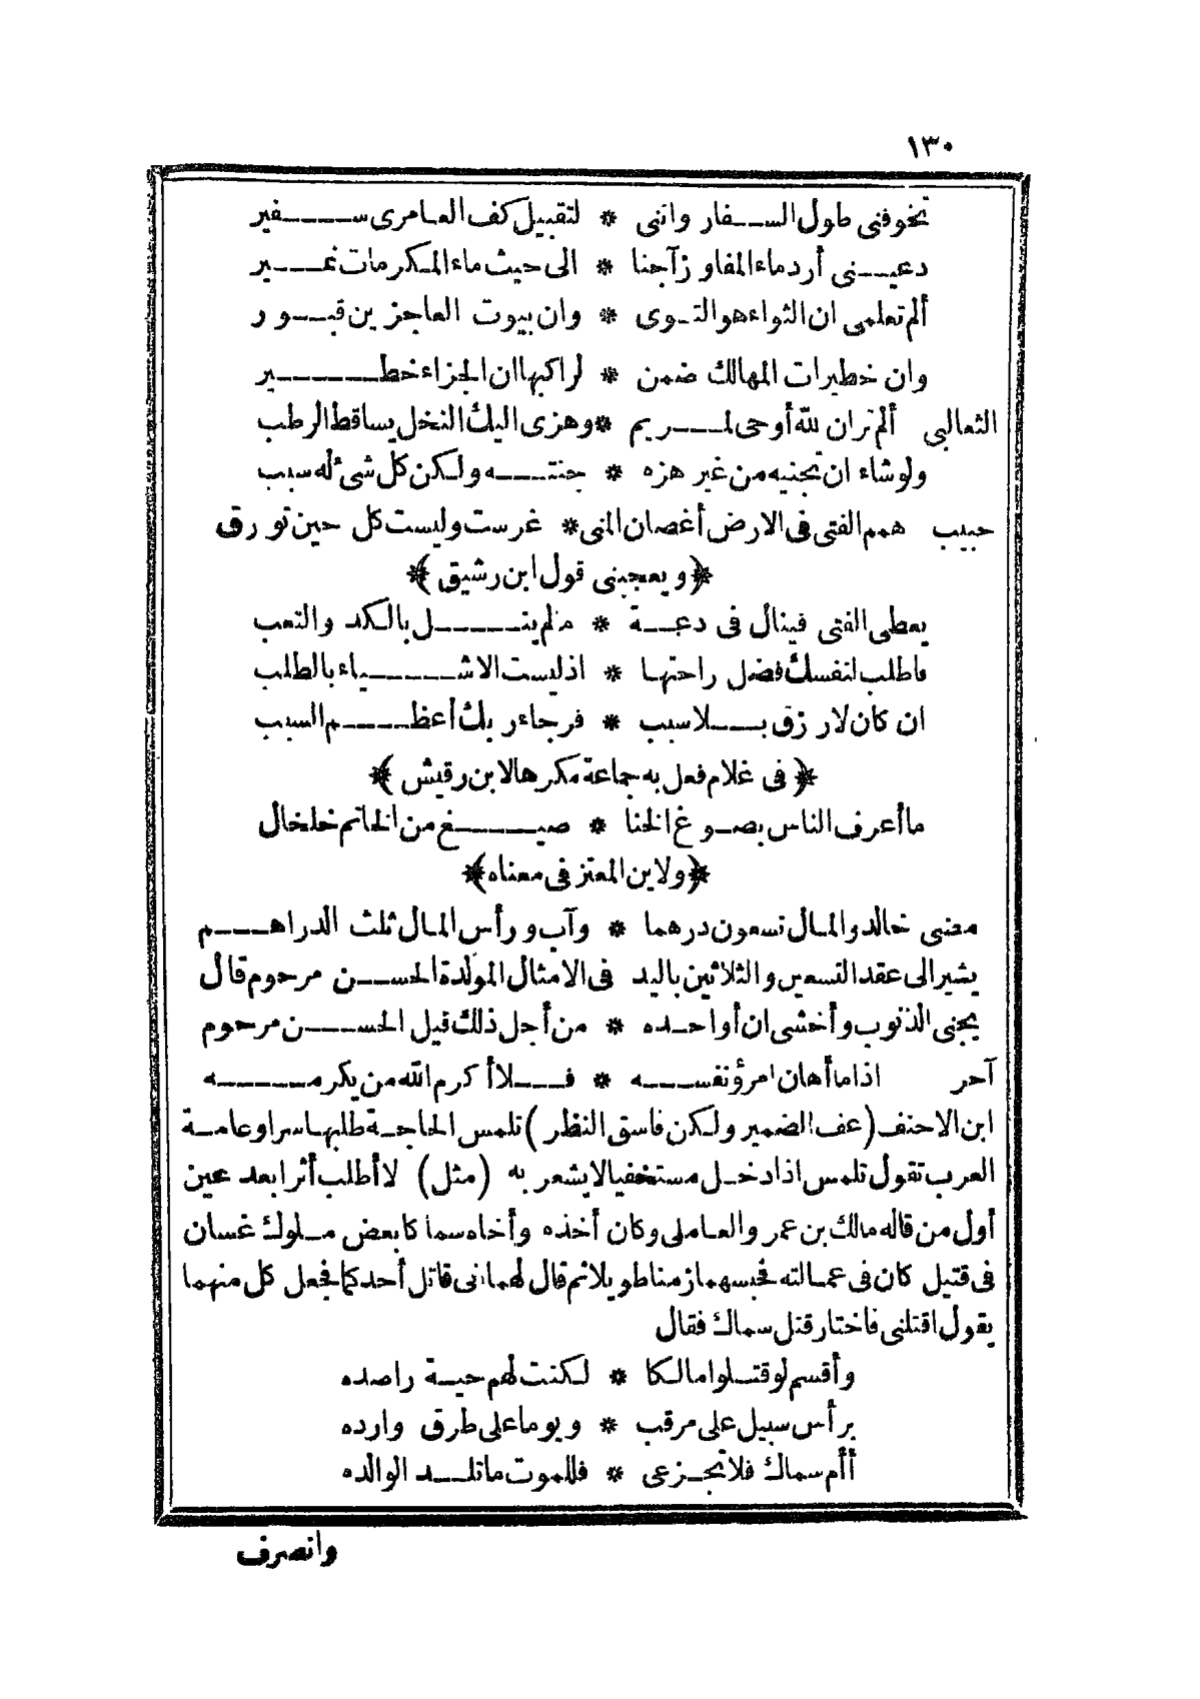 ١٣٠
تخوفنى طول السفار واننى * لتقبيل كف العامرى سفير
دعينى أرد ماء المفاوز آجنا * الى حيث ماء المكرمات نمير
ألم تعلمى ان الثواء هو التوى * وان بيوت العاجزين قبور
وان خطيرات المهالك ضمن * لراكبها ان الجزاء خطير
الثعالبى ألم تر ان لله أوحى لمريم * وهزى اليك النخل يساقط الرطب
ولو شاء ان تجنيه من غير هزه * جنته ولكن كل شئ له سبب
حبيب همم الفتى فى الارض أغصان المنى * غرست وليست كل حين تورق
﴿ويعجبنى قول ابن رشيق﴾
يعطى الفتى فينال فى دعة * ما لم ينل بالكد والتعب
فاطلب لنفسك فضل راحتها * اذ ليست الاشياء بالطلب
ان كان لا رزق بلا سبب * فرجاء ربك أعظم السبب
﴿فى غلام فعل به جماعة مكرها لابن رقيش﴾
ما أعرف الناس بصوغ الخنا * صيغ من الخاتم خلخال
﴿ولابن المعتز فى معناه﴾
مضى خالد والمال تسعون درهما * وآب ورأس المال ثلث الدراهم
يشير الى عقد التسعين والثلاثين باليد فى الامثال المولدة الحسن مرحوم قال
يجنى الذنوب وأخشى ان أواحده * من أجل ذلك قيل الحسن مرحوم
آخر اذا ما أهان امرؤ نفسه * فلا أكرم الله من يكرمه
ابن الاحنف (عف الضمير ولكن فاسق النظر) تلمس الحاجة طلبها سرا وعامة
العرب تقول تلمس اذا دخل مستخفيا لا يشعر به (مثل) لا أطلب أثرا بعد عين
أول من قاله مالك بن عمر والعاملى وكان أخذه وأخاه سماكا بعض ملوك غسان
فى قتيل كان فى عمالته فحبسهما زمنا طويلا ثم قال لهما انى قاتل أحدكما فجعل كل منهما
يقول اقتلنى فاختار قتل سماك فقال
وأقسم لو قتلوا مالكا * لكنت لهم حية راصده
برأس سبيل على مرقب * ويوما على طرق وارده
أأم سماك فلا تجزعى * فللموت ما تلد الوالده
وانصرف